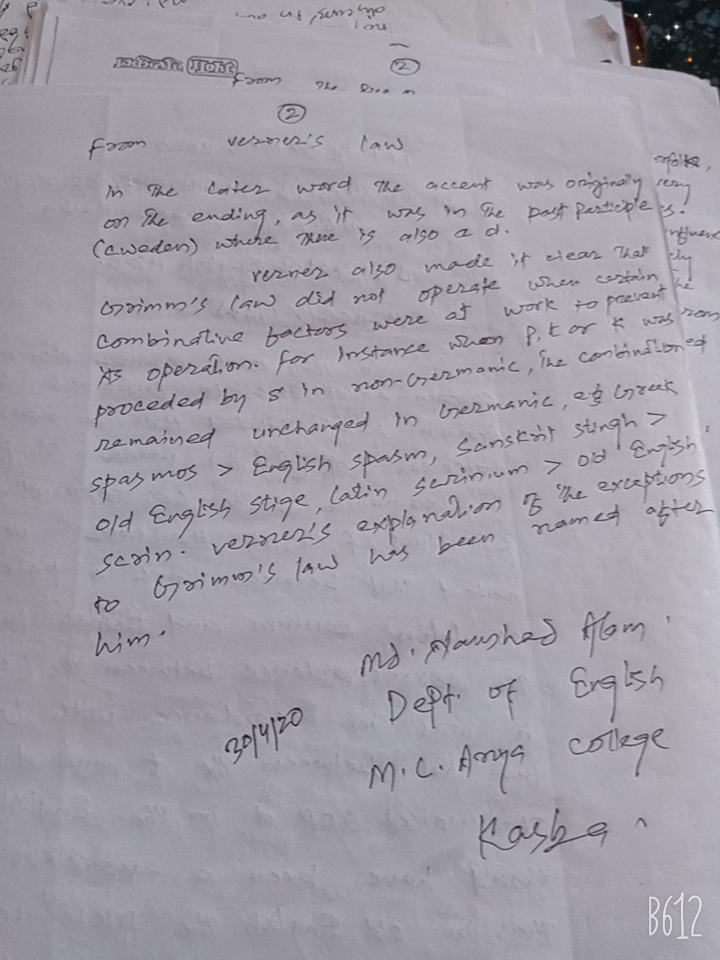 ②
from the
②
from verner's law
in the later word the accent was originally
on the ending, as it was in the past participle
(cweden) where there is also a d.
verner also made it clear that
Grimm's law did not operate when certain
combinative factors were at work to prevent
its operation. for instance when p, t or k was
proceded by s in non-Germanic, the combination
remained unchanged in Germanic, eg Greek
spasmos > English spasm, Sanskrit stingh >
old English stige, latin scrinium > old English
scrin. verner's explanation of the exceptions
to Grimm's law has been named after
him.
Md. Naushad Alam.
Dept. of English
30/4/20
M.C. Arya College
Kasba
B612